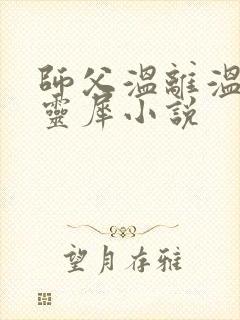 師父溫離溫
靈犀小說
望月存雅